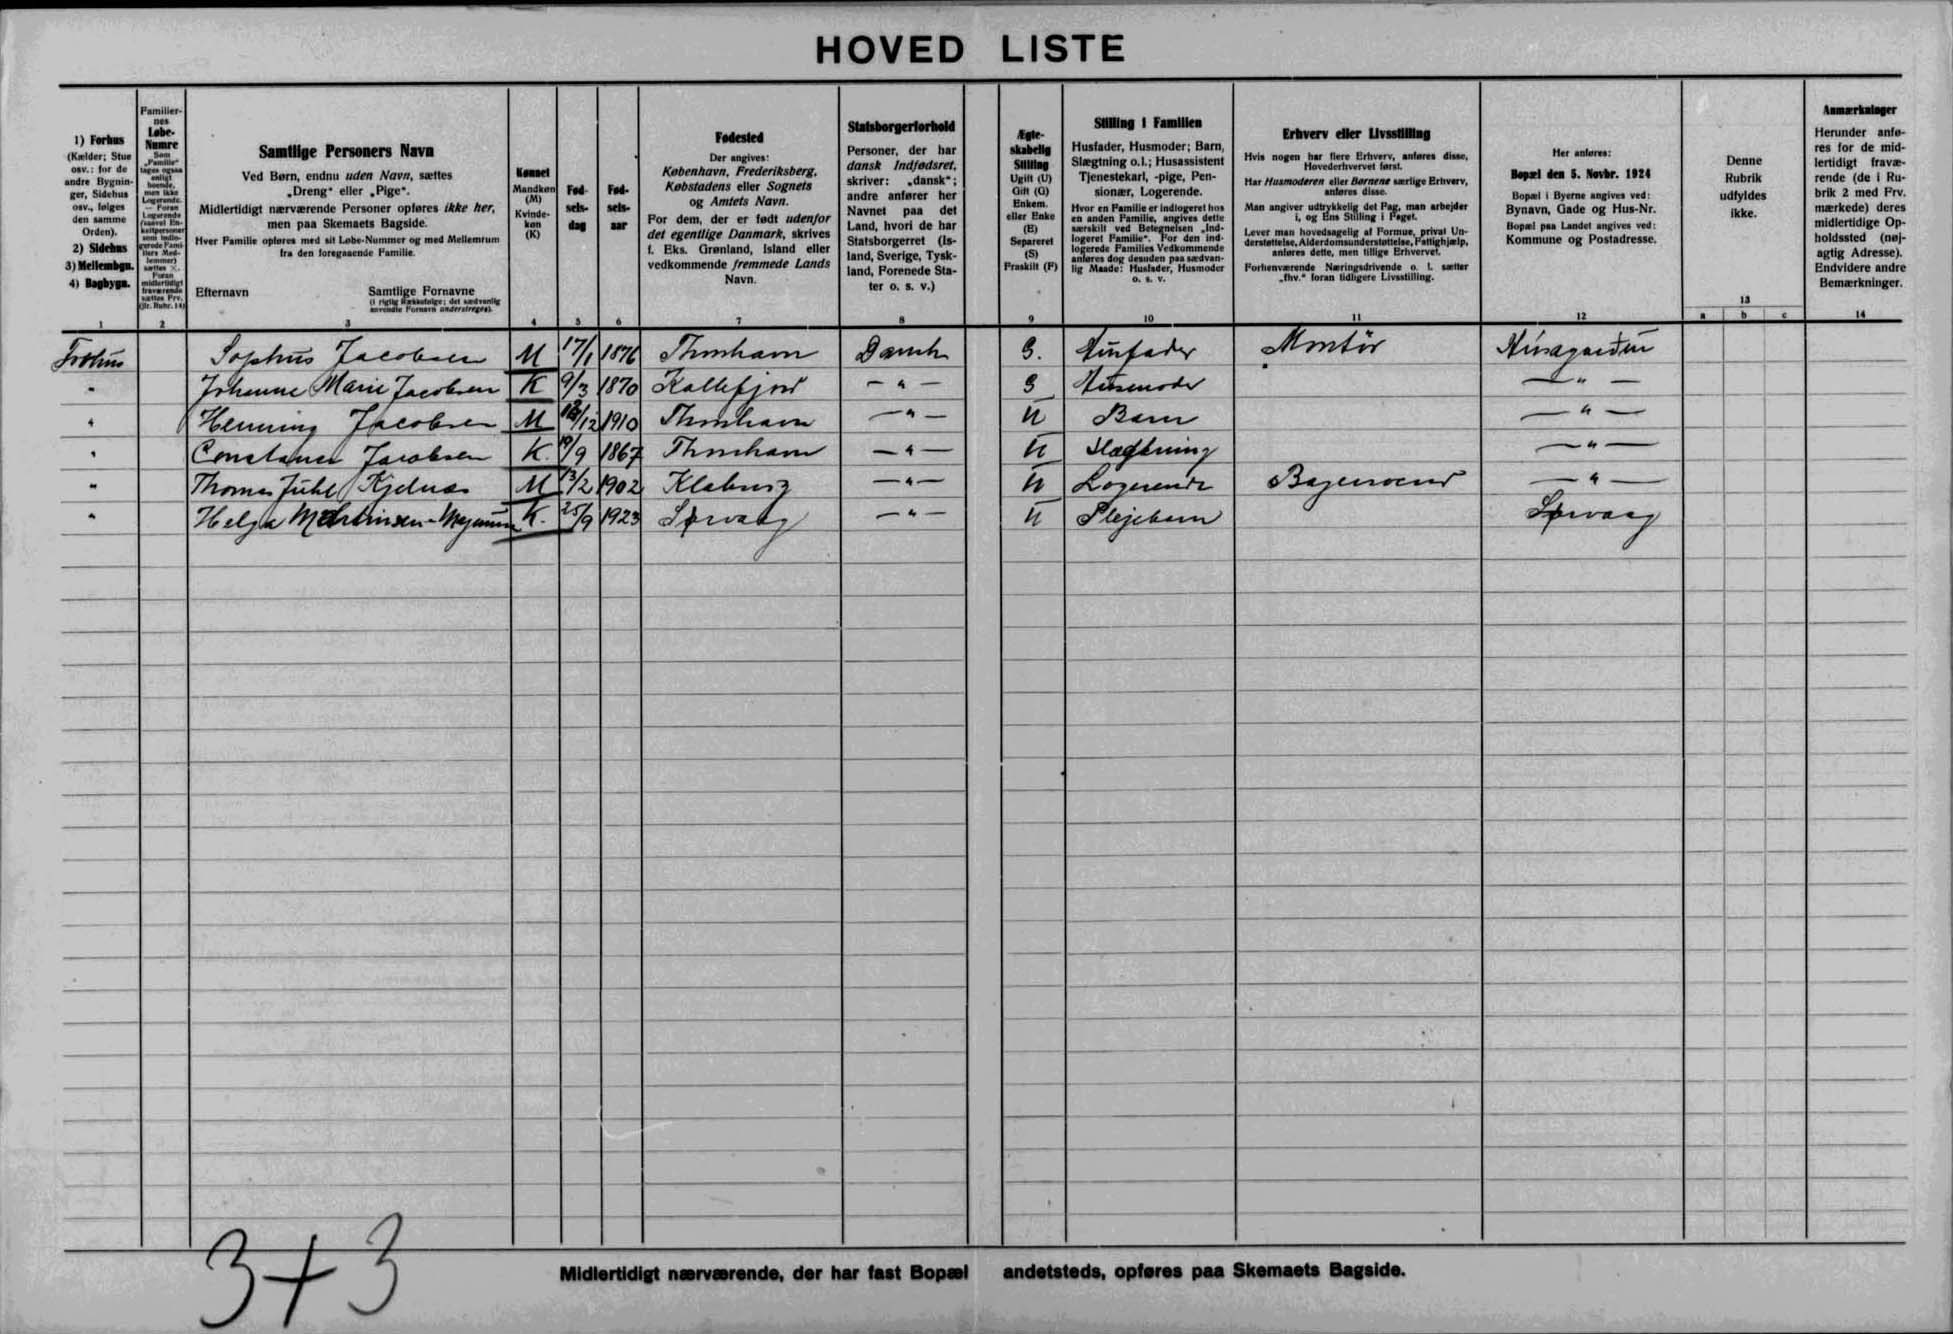 HOVED LISTE
1) Forhus
(Kælder; Stue
osv.: for de
andre Bygnin-
ger, Sidehus
osv., følges
den samme
Orden).
2) Sidehus
3) Mellembgn.
4) Bagbygn.
1
Familier-
nes
Løbe-
Numre
Som
„Familie“
tages ogsaa
enligt
boende,
men ikke
Logerende.
— Foran
Logerende
(saavel En-
keltpersoner
som indlo-
gerede Fami-
liers Med-
lemmer)
sættes ×.
Foran
midlertidigt
fraværende
sættes Frv.
(jfr. Rubr. 14)
2
Samtlige Personers Navn
Ved Børn, endnu uden Navn, sættes
„Dreng“ eller „Pige“.
Midlertidigt nærværende Personer opføres ikke her,
men paa Skemaets Bagside.
Hver Familie opføres med sit Løbe-Nummer og med Mellemrum
fra den foregaaende Familie.
Efternavn
Samtlige Fornavne
(i rigtig Rækkefølge; det sædvanlig
anvendte Fornavn understreges).
3
Kønnet
Mandkøn
(M)
Kvinde-
køn
(K)
4
Fød-
sels-
dag
5
Fød-
sels-
aar
6
Fødested
Der angives:
København, Frederiksberg,
Købstadens eller Sognets
og Amtets Navn.
For dem, der er født udenfor
det egentlige Danmark, skrives
f. Eks. Grønland, Island eller
vedkommende fremmede Lands
Navn.
7
Statsborgerforhold
Personer, der har
dansk Indfødsret,
skriver: „dansk“;
andre anfører her
Navnet paa det
Land, hvori de har
Statsborgerret (Is-
land, Sverige, Tysk-
land, Forenede Sta-
ter o. s. v.)
8
Ægte-
skabelig
Stilling
Ugift (U)
Gift (G)
Enkem.
eller Enke
(E)
Separeret
(S)
Fraskilt (F)
9
Stilling i Familien
Husfader, Husmoder; Barn,
Slægtning o.l.; Husassistent
Tjenestekarl, -pige, Pen-
sionær, Logerende.
Hvor en Familie er indlogeret hos
en anden Familie, angives dette
særskilt ved Betegnelsen „Ind-
logeret Familie“. For den ind-
logerede Families Vedkommende
anføres dog desuden paa sædvan-
lig Maade: Husfader, Husmoder
o. s. v.
10
Erhverv eller Livsstilling
Hvis nogen har flere Erhverv, anføres disse,
Hovederhvervet først.
Har Husmoderen eller Børnene særlige Erhverv,
anføres disse.
Man angiver udtrykkelig det Fag, man arbejder
i, og Ens Stilling i Faget.
Lever man hovedsagelig af Formue, privat Un-
derstøttelse, Alderdomsunderstøttelse, Fattighjælp,
anføres dette, men tillige Erhvervet.
Forhenværende Næringsdrivende o. l. sætter
„fhv.“ foran tidligere Livsstilling.
11
Her anføres:
Bopæl den 5. Novbr. 1924
Bopæl i Byerne angives ved:
Bynavn, Gade og Hus-Nr.
Bopæl paa Landet angives ved:
Kommune og Postadresse.
12
Denne
Rubrik
udfyldes
ikke.
13
a b c
Anmærkninger
Herunder anfø-
res for de mid-
lertidigt fravæ-
rende (de i Ru-
brik 2 med Frv.
mærkede) deres
midlertidige Op-
holdssted (nøj-
agtig Adresse).
Endvidere andre
Bemærkninger.
14
Forhus Sophus Jacobsen M 17/1 1876 Thorshavn Dansk G. Husfader Montør Húsagardur
" Johanne Marie Jacobsen K 9/3 1870 Kollefjord — " — G Husmoder — " —
" Henning Jacobsen M /12 1910 Thorshavn — " — U Barn — " —
" Constance Jacobsen K. 19/9 1867 Thorshavn — " — U Slægtning — " —
" Thomas Juhl Kjelnæs M 13/2 1902 Klaksvig — " — U Logerende Bagersvend — " —
" Helga K. 25/9 1923 Sørvaag — " — U Plejebarn Sørvaag
3+3
Midlertidigt nærværende, der har fast Bopæl andetsteds, opføres paa Skemaets Bagside.